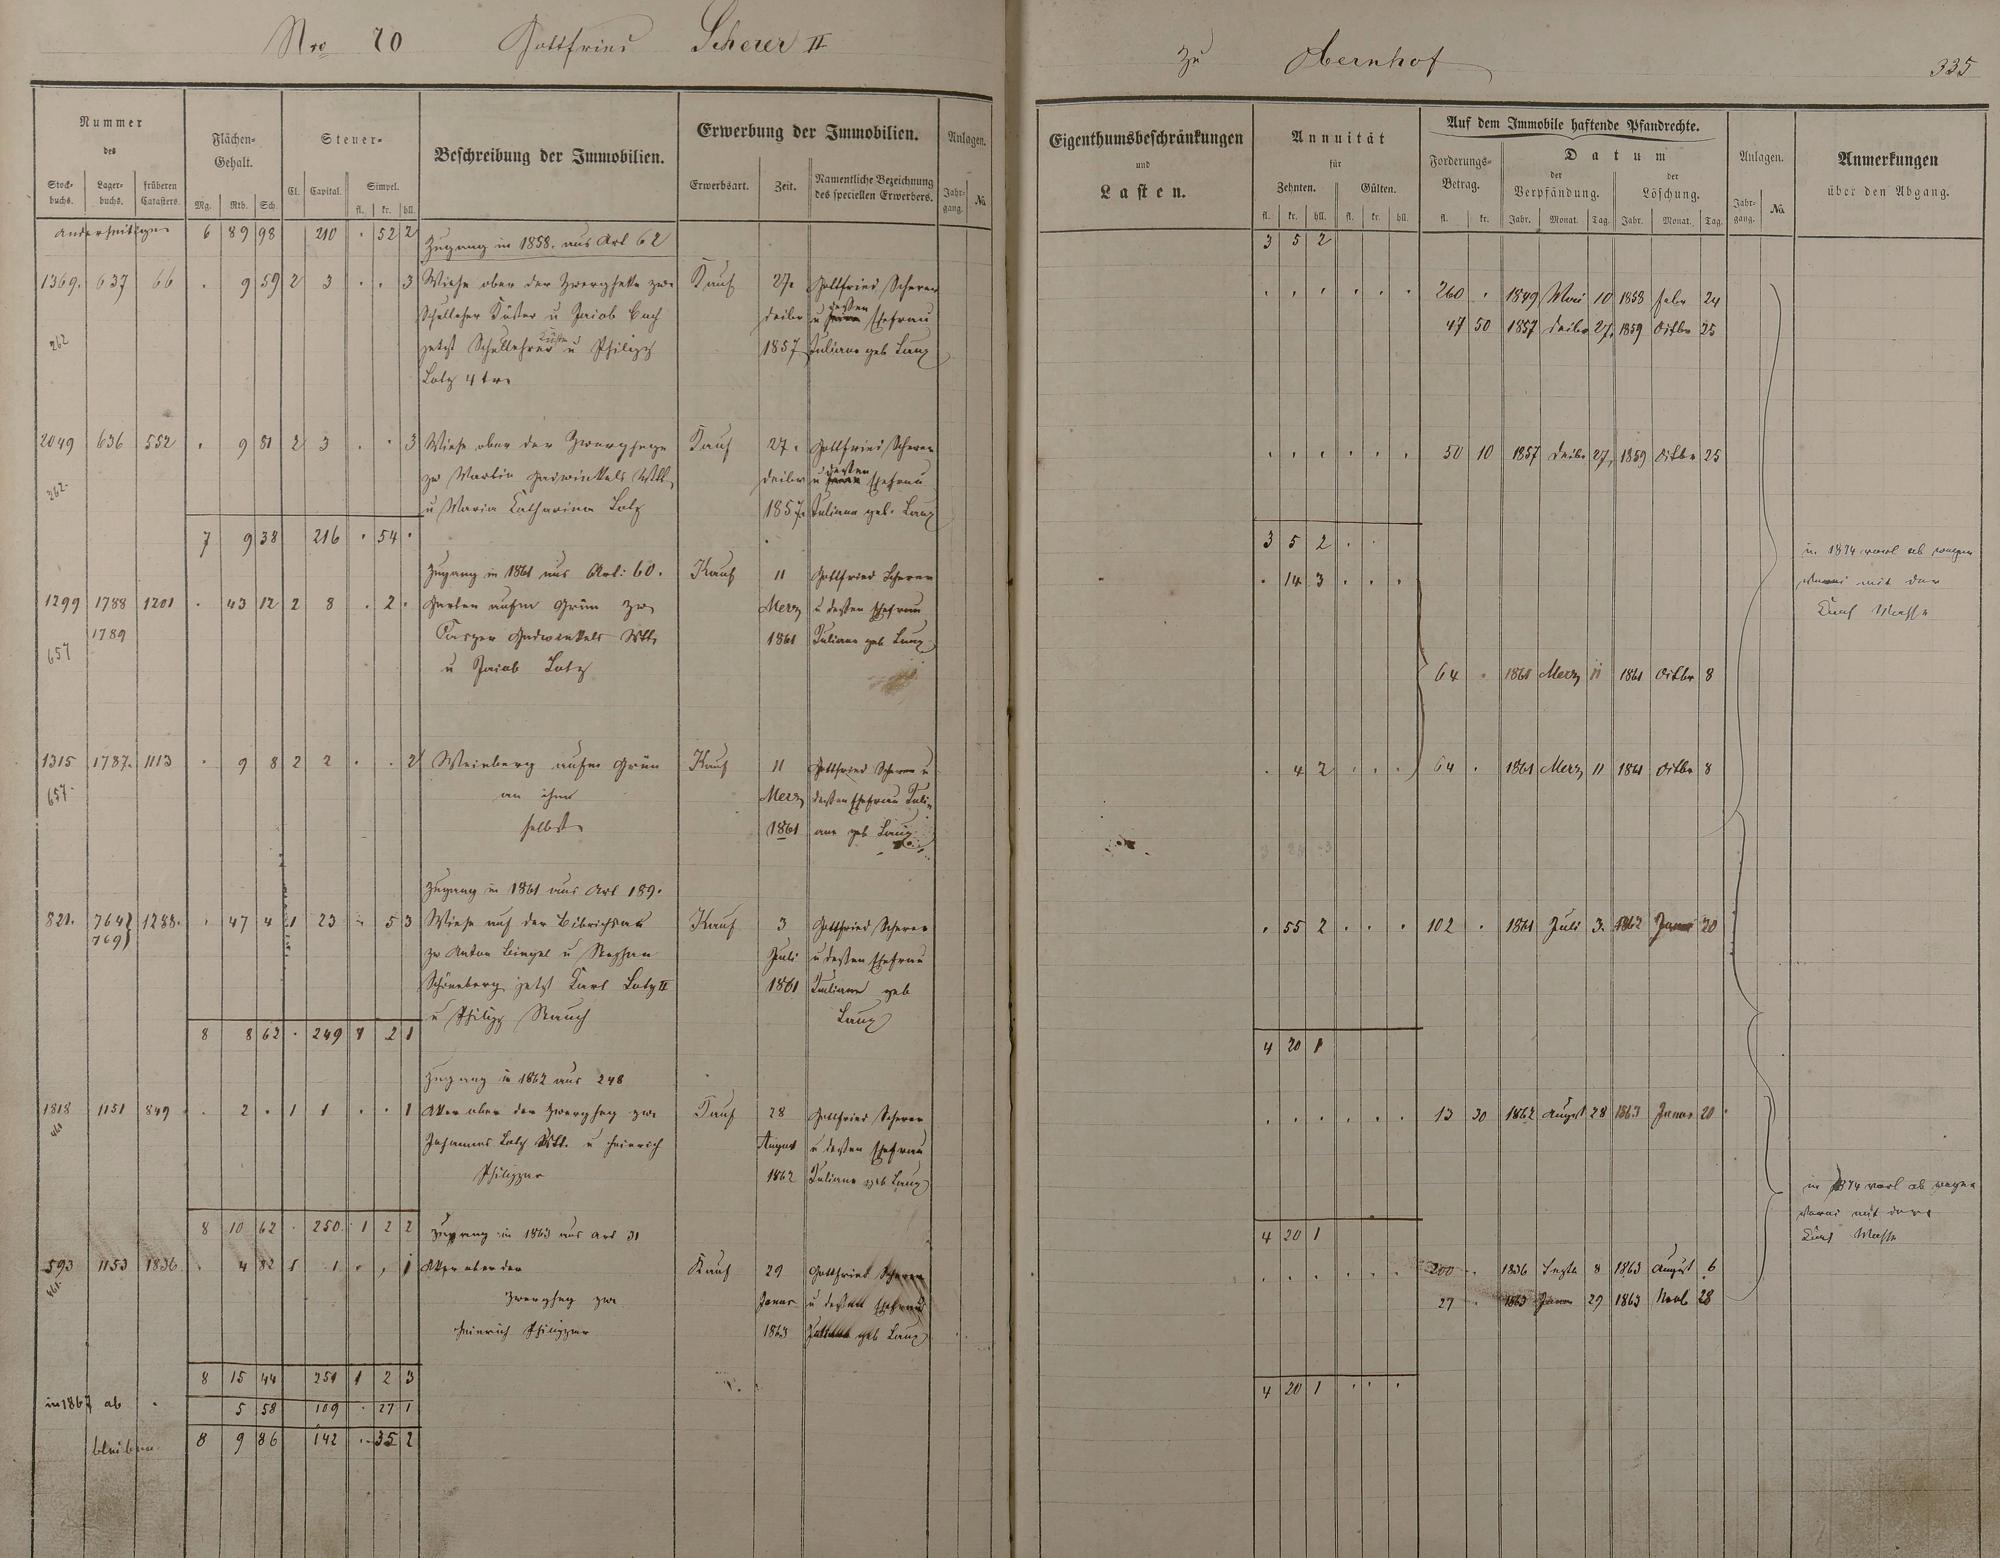 Nro 70 Gottfried Scherer II
zu Obernhof
335
Nummer
des
Stock-
buchs.
Lager-
buchs.
früheren
Catasters.
Flächen-
Gehalt.
Mg. Rth. Sch.
Steuer-
Cl. Capital. Simpel.
fl. kr. hll.
Beschreibung der Immobilien.
Erwerbung der Immobilien.
Erwerbsart. Zeit. Namentliche Bezeichnung
des speciellen Erwerbers.
Anlagen.
Jahr-
gang. No.
Eigenthumsbeschränkungen
und
Lasten.
Annuität
für
Zehnten. Gülten.
fl. kr. hll. fl. kr. hll.
Auf dem Immobile haftende Pfandrechte.
Forderungs-
Betrag.
fl. kr.
Datum
der
Verpfändung.
der
Löschung.
Jahr. Monat. Tag. Jahr. Monat. Tag.
Anlagen.
Jahr-
gang. No.
Anmerkungen
über den Abgang.
6 89 98 210 . 52 2
Zugang in 1858. aus Art 62
3 5 2
1369. 637 66 . 9 59 2 3 . . 3 Wiese ober der Zwerghecke zw. Kauf 27. Gottfried Scherer
260 . 1849 Mai 10 1858 Febr 24
Schullehrer Küster u Jacob Bach Decbr u dessen Ehefrau
47 50 1857 Decbr 27. 1859 Octbr 25
262
jetzt Schullehrer Küster u Philipp 1857 Juliane geb Laux
Lotz 4 tr.
2049 636 552 . 9 81 2 3 . . 3 Wiese ober der Zwerghege Kauf 27. Gottfried Scherer
50 10 1857 Decbr 27, 1859 Octbr 25
262.
zw Martin Wttb Decbr u dessen Ehefrau
u Maria Catharina Lotz 1857. Juliane geb. Laux
7 9 38 216 . 54 .
3 5 2 . .
Zugang in 1861 aus Art: 60. Kauf 11 Gottfried Scherer
. 14 3 . . .
1299 1788 1201 . 43 12 2 8 . 2 . Garten aufm Grün zw. Merz u dessen Ehefrau
1789
657
Casper Wtb. 1861 Juliane geb Laux
u Jacob Lotz
64 . 1861 Merz 11 1861 Octbr 8
in 1874
mit der
Masse
1315 1787. 1113 . 9 8 2 2 . . 2 Weinberg aufm Grün Kauf 11 Gottfried Scherer u
. 4 2 . . . 64 . 1861 Merz 11 1861 Octbr 8
657.
an ihm Merz dessen Ehefrau Juli-
selbst 1861 ane geb Laux
Zugang in 1861 aus Art 189.
821. 764 1288. . 47 4 1 23 . 5 3 Wiese auf der Kauf 3 Gottfried Scherer
769
. 55 2 . . . 102 . 1861 Juli 3. 1862 20
zw Anton u Stephan Juli u dessen Ehefrau
Schöneberg jetzt Karl Lotz II 1861 Juliane geb
u Philipp Rauch Laux
8 8 62 . 249 1 2 1
4 20 1
Zugang in 1862 aus 248
1818 1151 849 . 2 . 1 1 . . 1 Acker ober der Zwergheg zw. Kauf 28 Gottfried Scherer
13 30 1862 August 28 1863 Januar 20
Johannes Lotz Wtb. u Heinrich August u dessen Ehefrau
Philippar 1862 Juliane geb Laux
8 10 62 . 250 . 1 2 2 Zugang in 1863 aus Art 31
4 20 1
in 1874
mit der
Masse
593 1153 1836 . 4 82 1 . . 1 Acker ober der Kauf 29 Gottfried Scherer
200 . 1836 Septb 8 1863 August 6
Zwergheg zw. Januar u dessen Ehefrau
27 . 1863 Januar 29 1863 Novb 28
Heinrich Philippar 1863 Juliane geb Laux
8 15 44 251 1 2 3
4 20 1 . . .
in 1867 ab . 5 58 109 . 27 1
bleiben 8 9 86 142 . 35 2